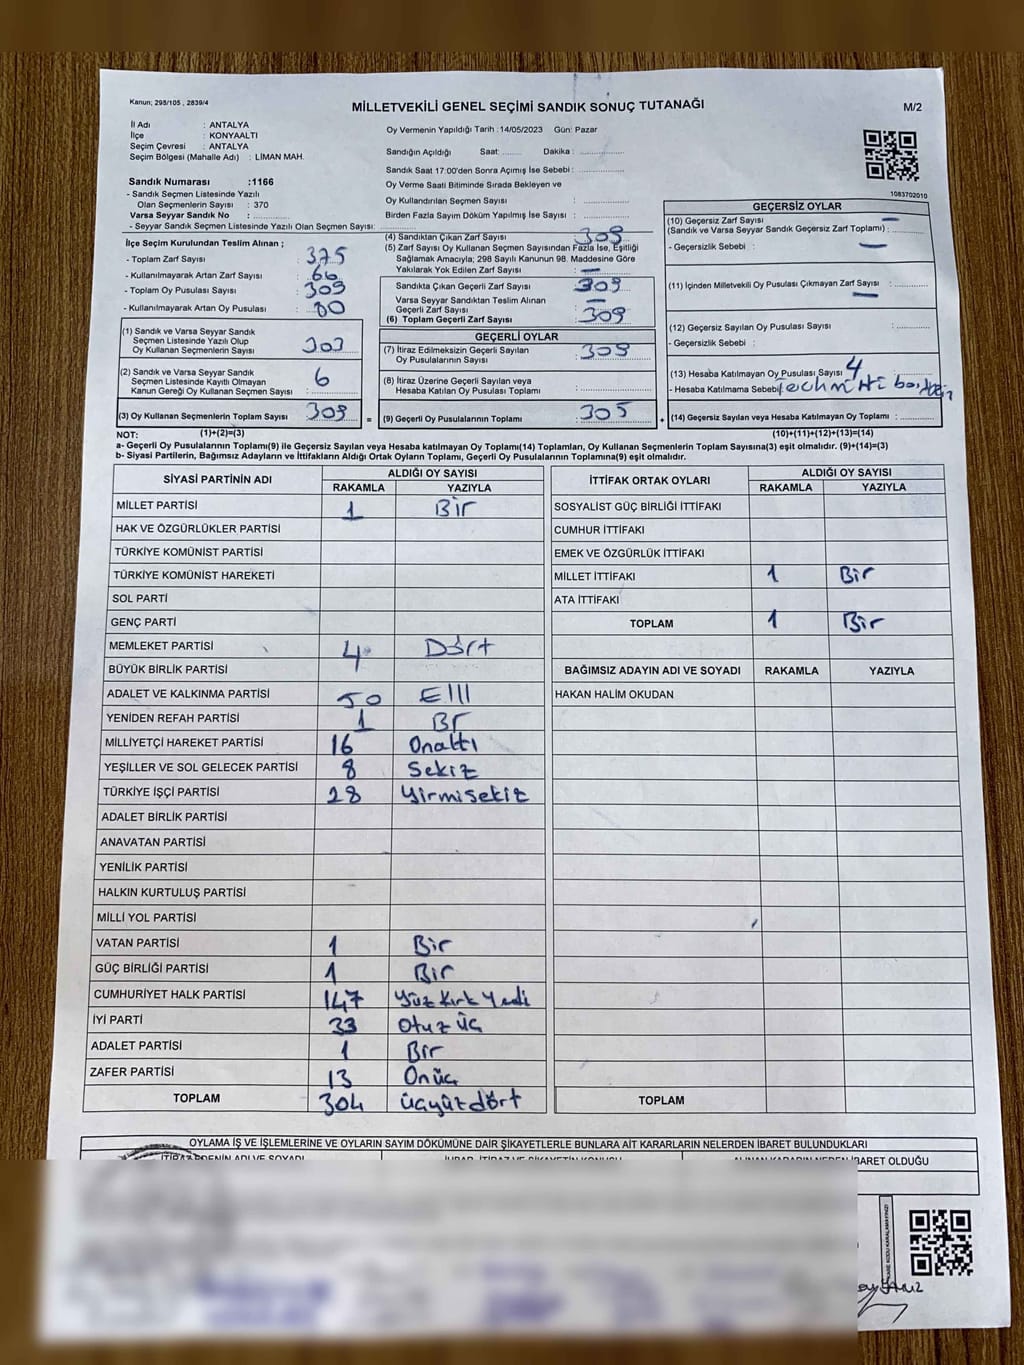 Kanun; 298/105 , 2839/4
MİLLETVEKİLİ GENEL SEÇİMİ SANDIK SONUÇ TUTANAĞI
M/2
İl Adı : ANTALYA
İlçe : KONYAALTI
Seçim Çevresi : ANTALYA
Seçim Bölgesi (Mahalle Adı) : LİMAN MAH.
Sandık Numarası :1166
- Sandık Seçmen Listesinde Yazılı
Olan Seçmenlerin Sayısı : 370
Varsa Seyyar Sandık No :
- Seyyar Sandık Seçmen Listesinde Yazılı Olan Seçmen Sayısı:
Oy Vermenin Yapıldığı Tarih :14/05/2023 Gün: Pazar
Sandığın Açıldığı Saat: Dakika :
Sandık Saat 17:00'den Sonra Açımış İse Sebebi :
Oy Verme Saati Bitiminde Sırada Bekleyen ve
Oy Kullandırılan Seçmen Sayısı :
Birden Fazla Sayım Döküm Yapılmış İse Sayısı :
1083702010
İlçe Seçim Kurulundan Teslim Alınan ;
- Toplam Zarf Sayısı : 375
- Kullanılmayarak Artan Zarf Sayısı : 66
- Toplam Oy Pusulası Sayısı : 309
- Kullanılmayarak Artan Oy Pusulası :
(1) Sandık ve Varsa Seyyar Sandık
Seçmen Listesinde Yazılı Olup
Oy Kullanan Seçmenlerin Sayısı : 303
(2) Sandık ve Varsa Seyyar Sandık
Seçmen Listesinde Kayıtlı Olmayan
Kanun Gereği Oy Kullanan Seçmen Sayısı : 6
(3) Oy Kullanan Seçmenlerin Toplam Sayısı : 309
(4) Sandıktan Çıkan Zarf Sayısı : 309
(5) Zarf Sayısı Oy Kullanan Seçmen Sayısından Fazla İse, Eşitliği
Sağlamak Amacıyla; 298 Sayılı Kanunun 98. Maddesine Göre
Yakılarak Yok Edilen Zarf Sayısı : —
Sandıkta Çıkan Geçerli Zarf Sayısı : 309
Varsa Seyyar Sandıktan Teslim Alınan
Geçerli Zarf Sayısı : —
(6) Toplam Geçerli Zarf Sayısı : 309
GEÇERLİ OYLAR
(7) İtiraz Edilmeksizin Geçerli Sayılan
Oy Pusulalarının Sayısı : 305
(8) İtiraz Üzerine Geçerli Sayılan veya
Hesaba Katılan Oy Pusulası Toplamı :
= (9) Geçerli Oy Pusulalarının Toplamı : 305
GEÇERSİZ OYLAR
(10) Geçersiz Zarf Sayısı —
(Sandık ve Varsa Seyyar Sandık Geçersiz Zarf Toplamı) :
- Geçersizlik Sebebi : —
(11) İçinden Milletvekili Oy Pusulası Çıkmayan Zarf Sayısı : —
(12) Geçersiz Sayılan Oy Pusulası Sayısı :
- Geçersizlik Sebebi :
(13) Hesaba Katılmayan Oy Pusulası Sayısı : 4
- Hesaba Katılmama Sebebi :
+ (14) Geçersiz Sayılan veya Hesaba Katılmayan Oy Toplamı :
NOT: (1)+(2)=(3) (10)+(11)+(12)+(13)=(14)
a- Geçerli Oy Pusulalarının Toplamı(9) ile Geçersiz Sayılan veya Hesaba katılmayan Oy Toplamı(14) Toplamları, Oy Kullanan Seçmenlerin Toplam Sayısına(3) eşit olmalıdır. (9)+(14)=(3)
b- Siyasi Partilerin, Bağımsız Adayların ve İttifakların Aldığı Ortak Oyların Toplamı, Geçerli Oy Pusulalarının Toplamına(9) eşit olmalıdır.
SİYASİ PARTİNİN ADI ALDIĞI OY SAYISI
RAKAMLA YAZIYLA
MİLLET PARTİSİ 1 Bir
HAK VE ÖZGÜRLÜKLER PARTİSİ
TÜRKİYE KOMÜNİST PARTİSİ
TÜRKİYE KOMÜNİST HAREKETİ
SOL PARTİ
GENÇ PARTİ
MEMLEKET PARTİSİ 4 Dört
BÜYÜK BİRLİK PARTİSİ
ADALET VE KALKINMA PARTİSİ 50 Elli
YENİDEN REFAH PARTİSİ 1 Br
MİLLİYETÇİ HAREKET PARTİSİ 16 Onaltı
YEŞİLLER VE SOL GELECEK PARTİSİ 8 Sekiz
TÜRKİYE İŞÇİ PARTİSİ 28 Yirmisekiz
ADALET BİRLİK PARTİSİ
ANAVATAN PARTİSİ
YENİLİK PARTİSİ
HALKIN KURTULUŞ PARTİSİ
MİLLİ YOL PARTİSİ
VATAN PARTİSİ 1 Bir
GÜÇ BİRLİĞİ PARTİSİ 1 Bir
CUMHURİYET HALK PARTİSİ 147 Yüz Kırk Yedi
İYİ PARTİ 33 Otuz üç
ADALET PARTİSİ 1 Bir
ZAFER PARTİSİ 13 Onüç
TOPLAM 304 üçyüzdört
İTTİFAK ORTAK OYLARI ALDIĞI OY SAYISI
RAKAMLA YAZIYLA
SOSYALİST GÜÇ BİRLİĞİ İTTİFAKI
CUMHUR İTTİFAKI
EMEK VE ÖZGÜRLÜK İTTİFAKI
MİLLET İTTİFAKI 1 Bir
ATA İTTİFAKI
TOPLAM 1 Bir
BAĞIMSIZ ADAYIN ADI VE SOYADI RAKAMLA YAZIYLA
HAKAN HALİM OKUDAN
TOPLAM
OYLAMA İŞ VE İŞLEMLERİNE VE OYLARIN SAYIM DÖKÜMÜNE DAİR ŞİKAYETLERLE BUNLARA AİT KARARLARIN NELERDEN İBARET BULUNDUKLARI
İTİRAZ EDENİN ADI VE SOYADI
ALINAN KARARIN NEDEN İBARET OLDUĞU